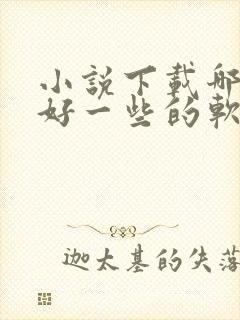 小說下載哪
好一些的軟
迦太基的失落